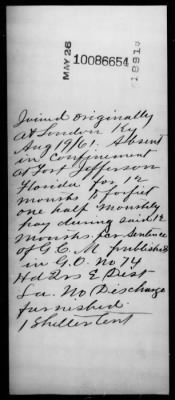 MAY 26
10086654
1891
Joined originally
at London Ky
Aug 19/61. Absent
in confinement
at Fort Jefferson
Florida for 12
months & forfeit
one half monthly
pay during said 12
months, per sentence
of G. C. M. published
in G.O. No 74
Hd Qrs E Dist
La. No Discharge
furnished.
1 Shelter tent